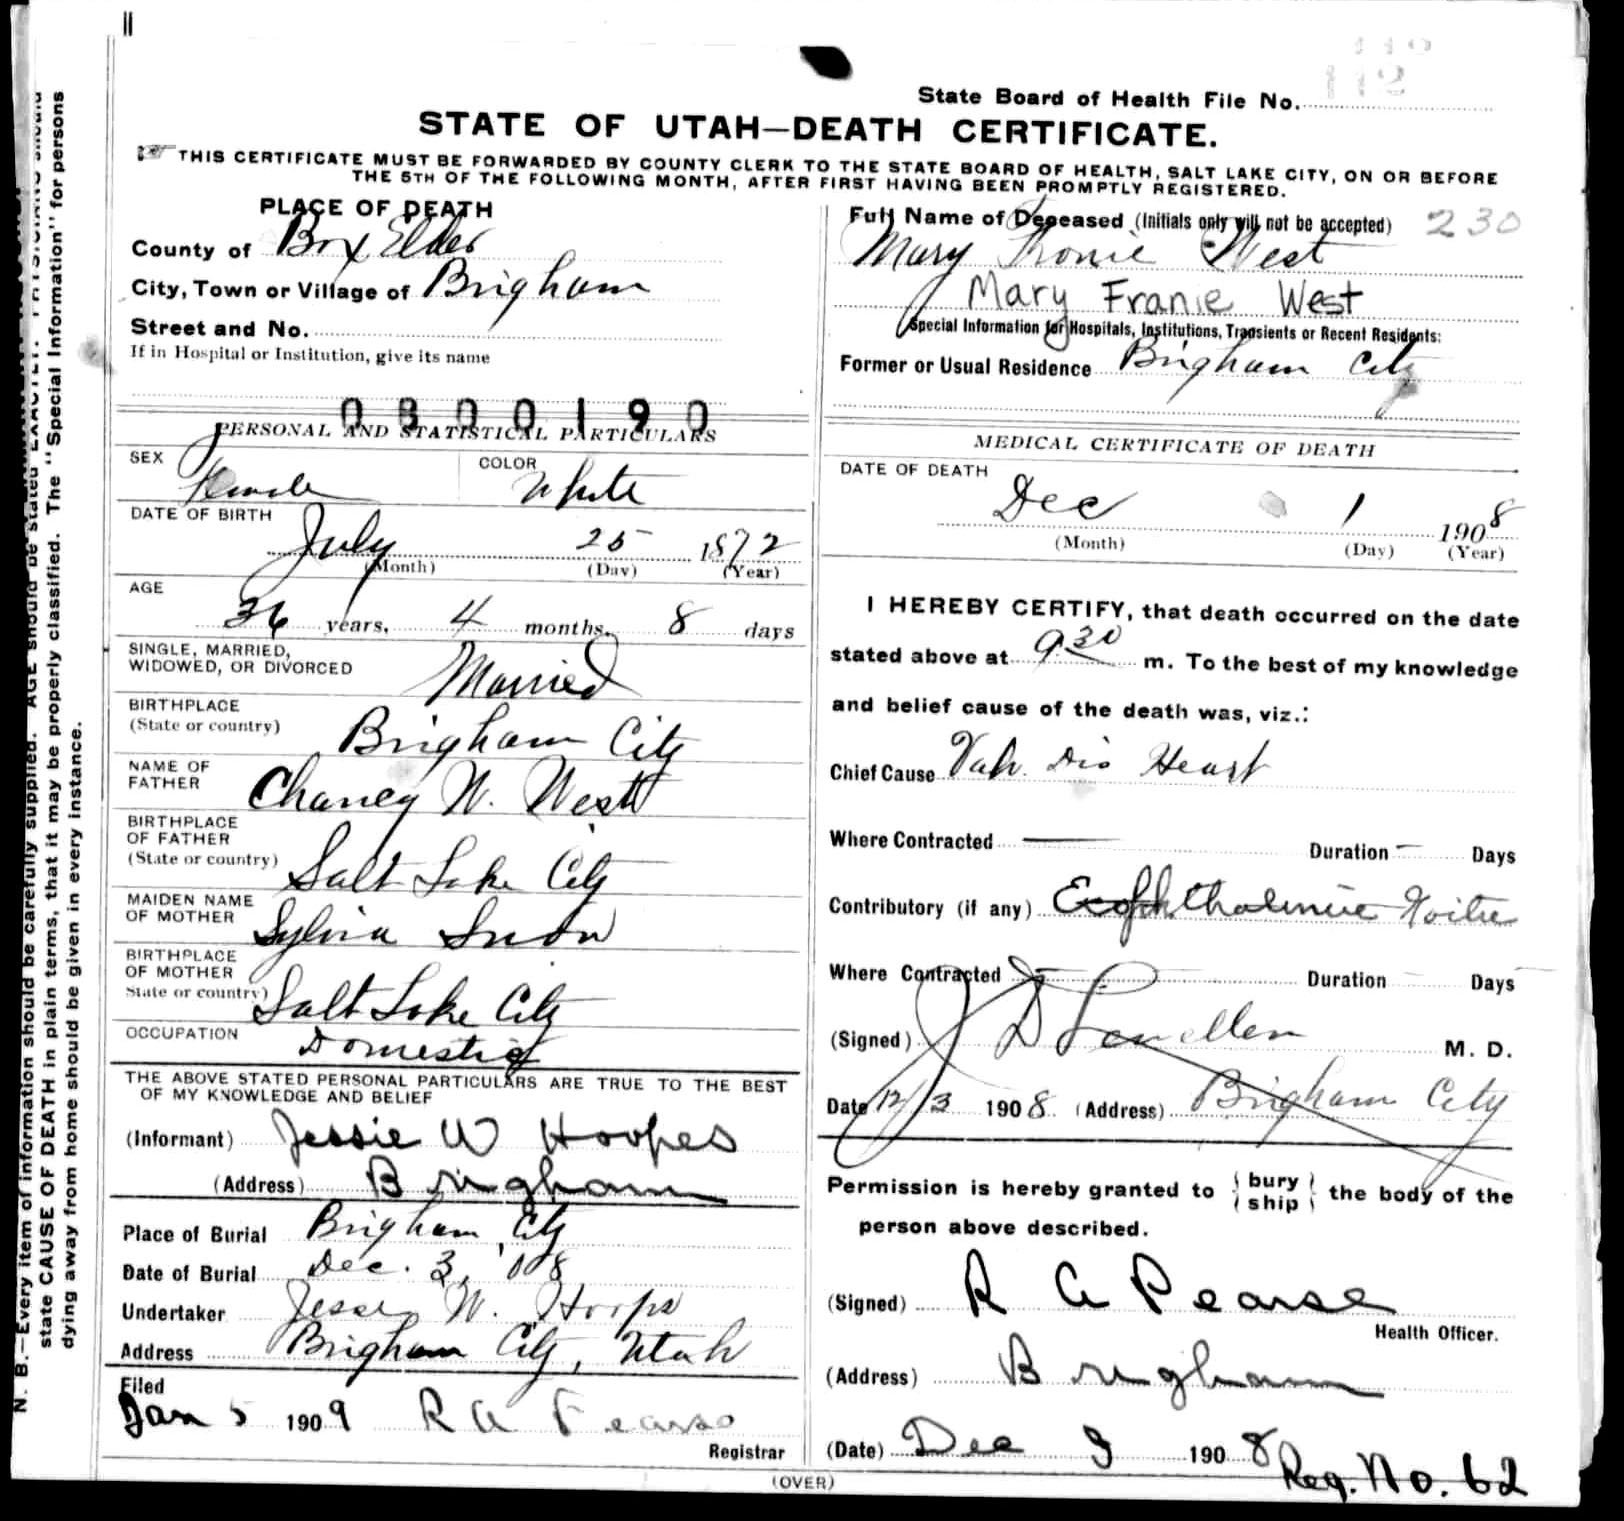 State Board of Health File No.
112
STATE OF UTAH—DEATH CERTIFICATE.
THIS CERTIFICATE MUST BE FORWARDED BY COUNTY CLERK TO THE STATE BOARD OF HEALTH, SALT LAKE CITY, ON OR BEFORE
THE 5TH OF THE FOLLOWING MONTH, AFTER FIRST HAVING BEEN PROMPTLY REGISTERED.
PLACE OF DEATH
County of Box Elder
City, Town or Village of Brigham
Street and No.
If in Hospital or Institution, give its name
0300190
PERSONAL AND STATISTICAL PARTICULARS
SEX Female COLOR White
DATE OF BIRTH
July 25 1872
(Month) (Day) (Year)
AGE
36 years, 4 months, 8 days
SINGLE, MARRIED,
WIDOWED, OR DIVORCED Married
BIRTHPLACE
(State or country) Brigham City
NAME OF
FATHER Chancy W. West
BIRTHPLACE
OF FATHER
(State or country) Salt Lake City
MAIDEN NAME
OF MOTHER Sylvia Snow
BIRTHPLACE
OF MOTHER
State or country) Salt Lake City
OCCUPATION Domestic
THE ABOVE STATED PERSONAL PARTICULARS ARE TRUE TO THE BEST
OF MY KNOWLEDGE AND BELIEF
(Informant) Jessie W Hoopes
(Address) Brigham
Place of Burial Brigham City
Date of Burial Dec. 3, '08
Undertaker Jesse W. Hoops
Address Brigham City, Utah
Filed
Jan 5 1909 R A Pearse
Registrar
Full Name of Deceased (Initials only will not be accepted) 230
Mary Fronie West
Mary Franie West
Special Information for Hospitals, Institutions, Transients or Recent Residents:
Former or Usual Residence Brigham City
MEDICAL CERTIFICATE OF DEATH
DATE OF DEATH
Dec 1 1908
(Month) (Day) (Year)
I HEREBY CERTIFY, that death occurred on the date
stated above at 9 30 m. To the best of my knowledge
and belief cause of the death was, viz.:
Chief Cause Valv. Dis Heart
Where Contracted — Duration — Days
Contributory (if any) Exophthalmic Goitre
Where Contracted Duration Days
(Signed) J D M. D.
Date 12/3 1908. (Address) Brigham City
Permission is hereby granted to { bury
ship } the body of the
person above described.
(Signed) R A Pearse
Health Officer.
(Address) Brigham
(Date) Dec 3 1908
Reg. No. 62
(OVER)
N. B.—Every item of information should be carefully supplied. AGE should be stated EXACTLY. PHYSICIANS should
state CAUSE OF DEATH in plain terms, that it may be properly classified. The "Special Information" for persons
dying away from home should be given in every instance.